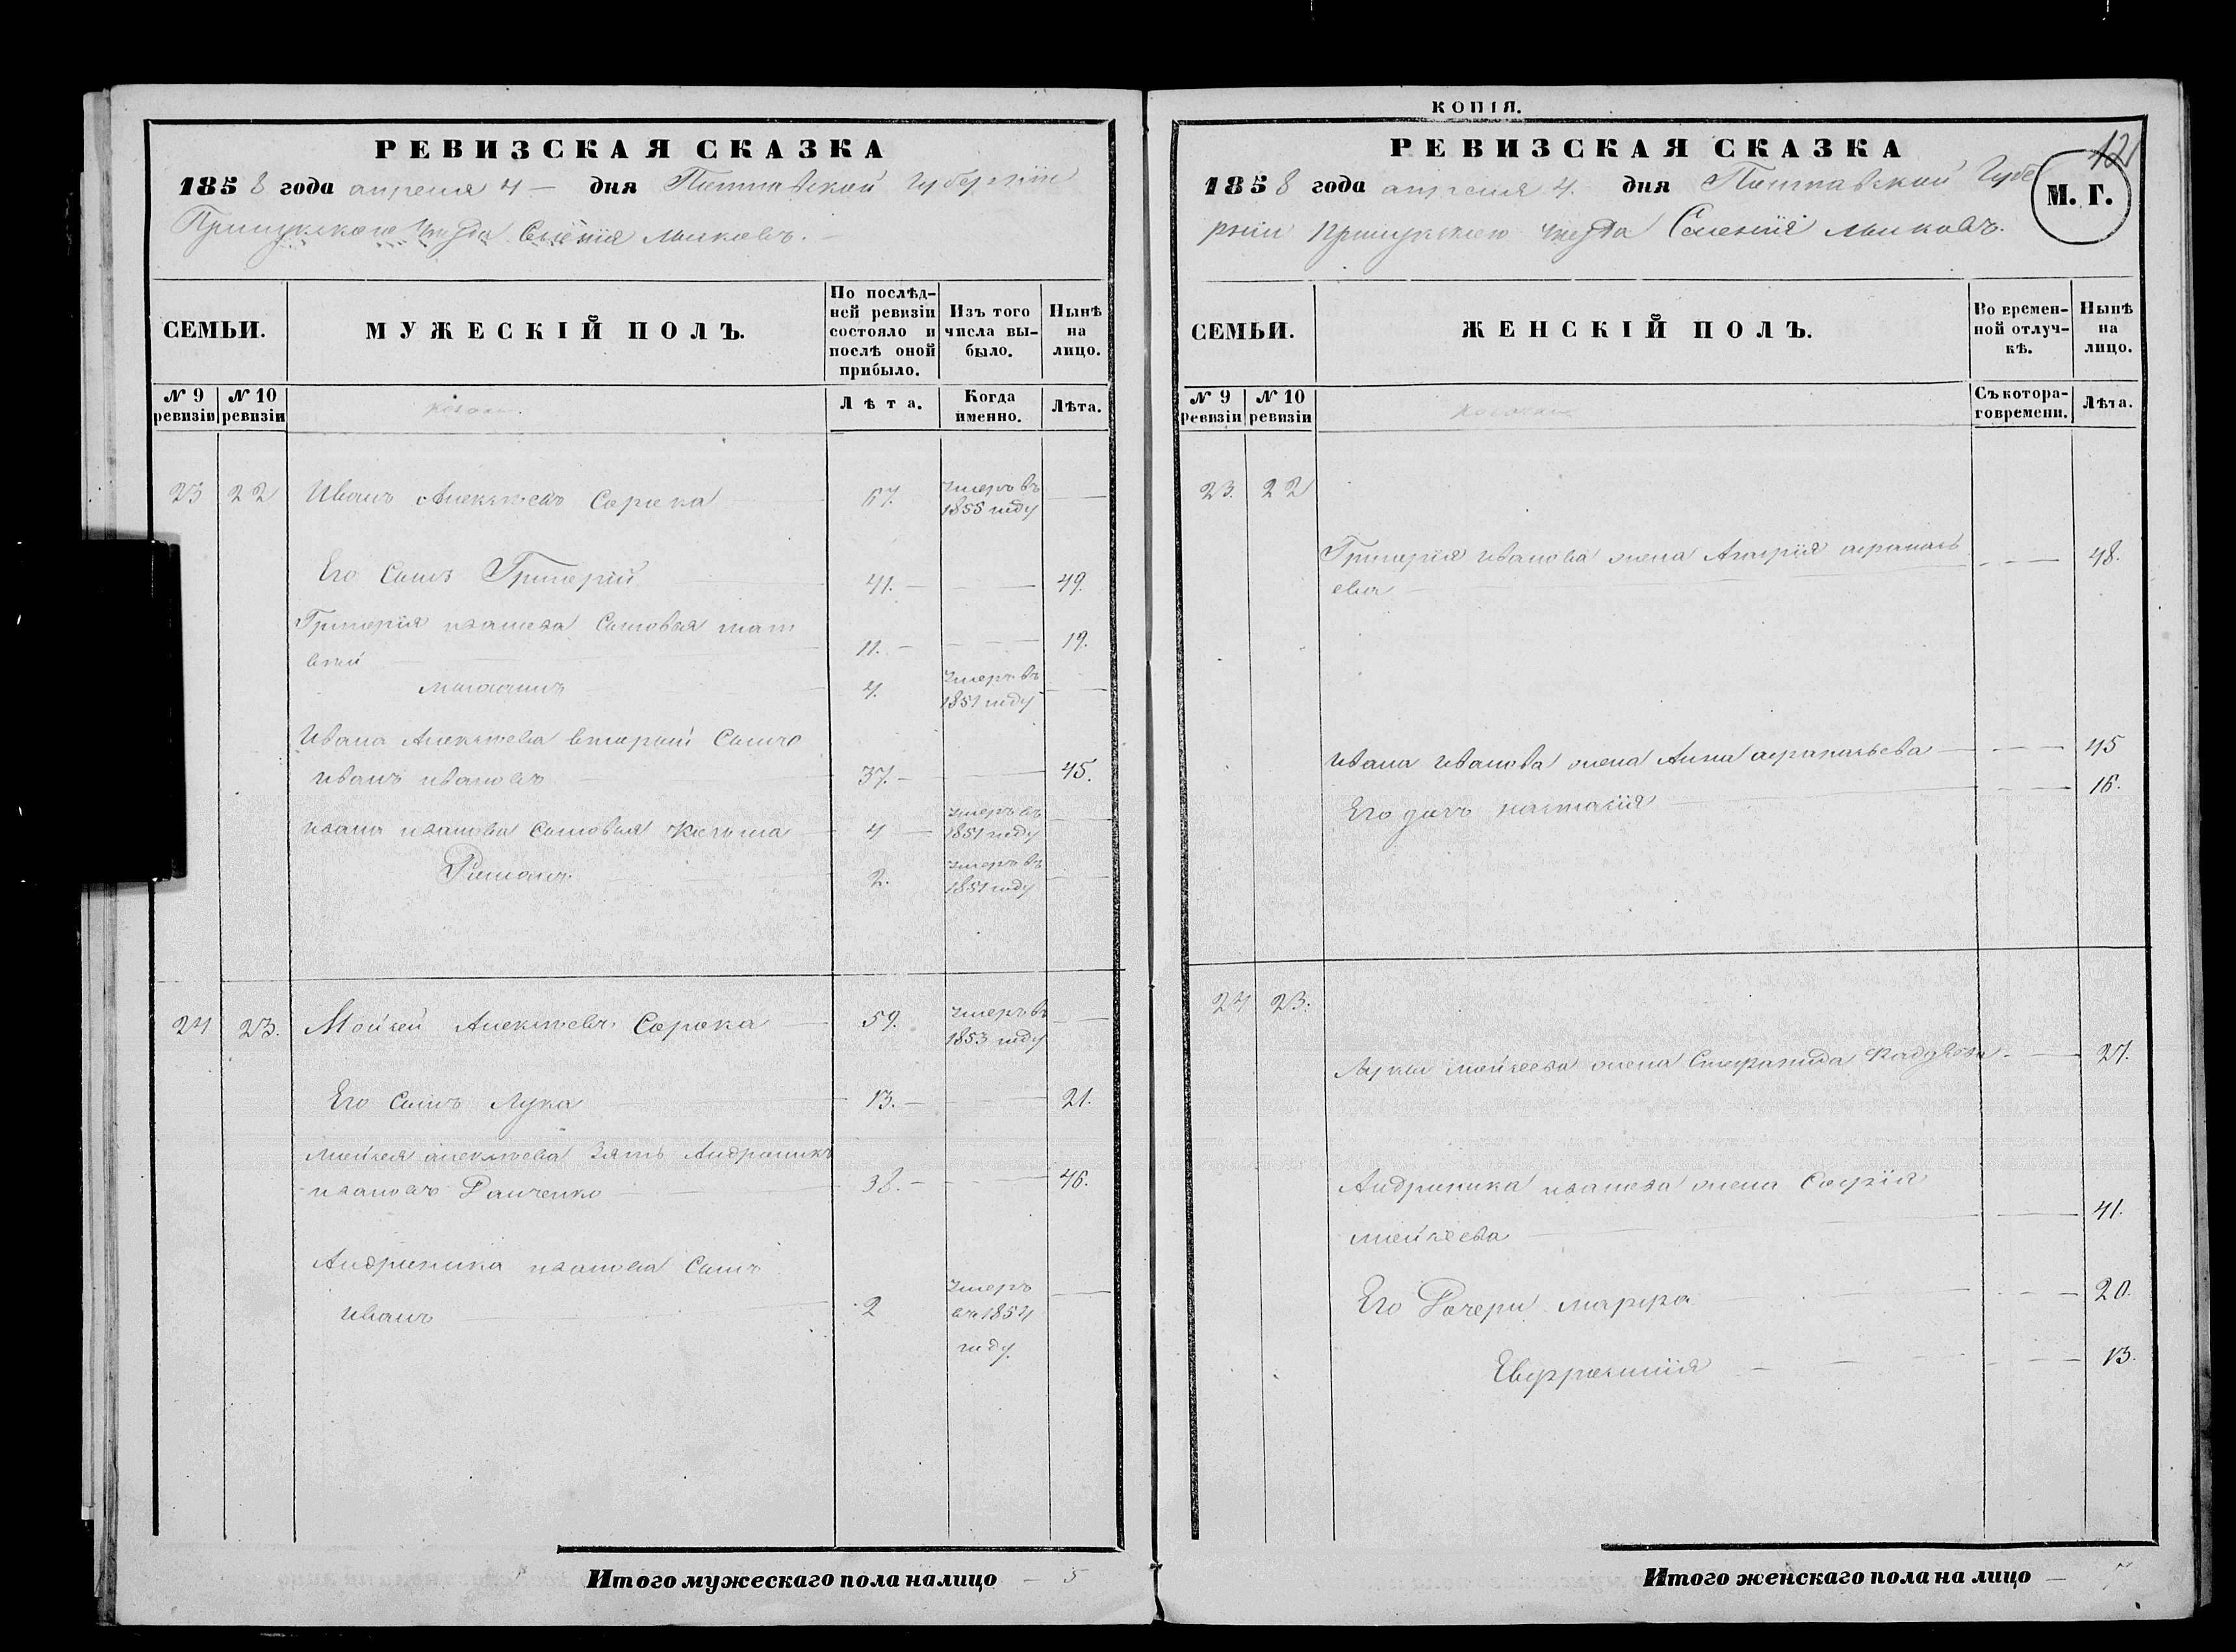 РЕВИЗСКАЯ СКАЗКА
1858 года апреля 4 — дня Полтавской губернии
Прилукского уезда Селения
СЕМЬИ.
МУЖЕСКІЙ ПОЛЪ.
По послѣд-
ней ревизіи
состояло и
послѣ оной
прибыло.
Изъ того
числа вы-
было.
Нынѣ
на
лицо.
№ 9
ревизіи
№ 10
ревизіи
Лѣта.
Когда
именно.
Лѣта.
23 22 Иванъ Алексѣевъ Сорока 67. умеръ въ
1855 году
Его Сынъ Григорій 41. 49.
Григорія Иванова Сыновья мат
вей 11. 19.
4. умеръ въ
1851 году
Ивана Алексѣева вторый Сынъ
Иванъ Ивановъ 37. 45.
Ивана Иванова Сыновья Козьма 4 умеръ въ
1851 году
Романъ 2. умеръ въ
1851 году
24 23. Мойсей Алексѣевъ Сорока 59. умеръ въ
1853 году
Его Сынъ Лука 13. 21.
Мойсея Алексѣева Зять Андроникъ
Ивановъ 38. 46.
Андроника Иванова Сынъ
Иванъ 2 умеръ
въ 1854
году.
Итого мужескаго пола налицо — 5
КОПІЯ.
РЕВИЗСКАЯ СКАЗКА
12
М. Г.
1858 года апреля 4. дня Полтавской Губе
рніи Прилукского уезда Селенія
СЕМЬИ.
ЖЕНСКІЙ ПОЛЪ.
Во времен-
ной отлуч-
кѣ.
Нынѣ
на
лицо.
№ 9
ревизіи
№ 10
ревизіи
Съ котора-
го времени.
Лѣта.
23. 22
Григорія Иванова жена Агафія афанась
ева 48.
Ивана Иванова жена Анна афанасьева 45
Его дочь настасія 16.
24 23.
Луки мойсеева жена Стефанида 27.
Андроника Иванова жена Софія
мойсеева 41.
Его Дочери марфа 20.
Евфросинія 13.
Итого женскаго пола на лицо — 7